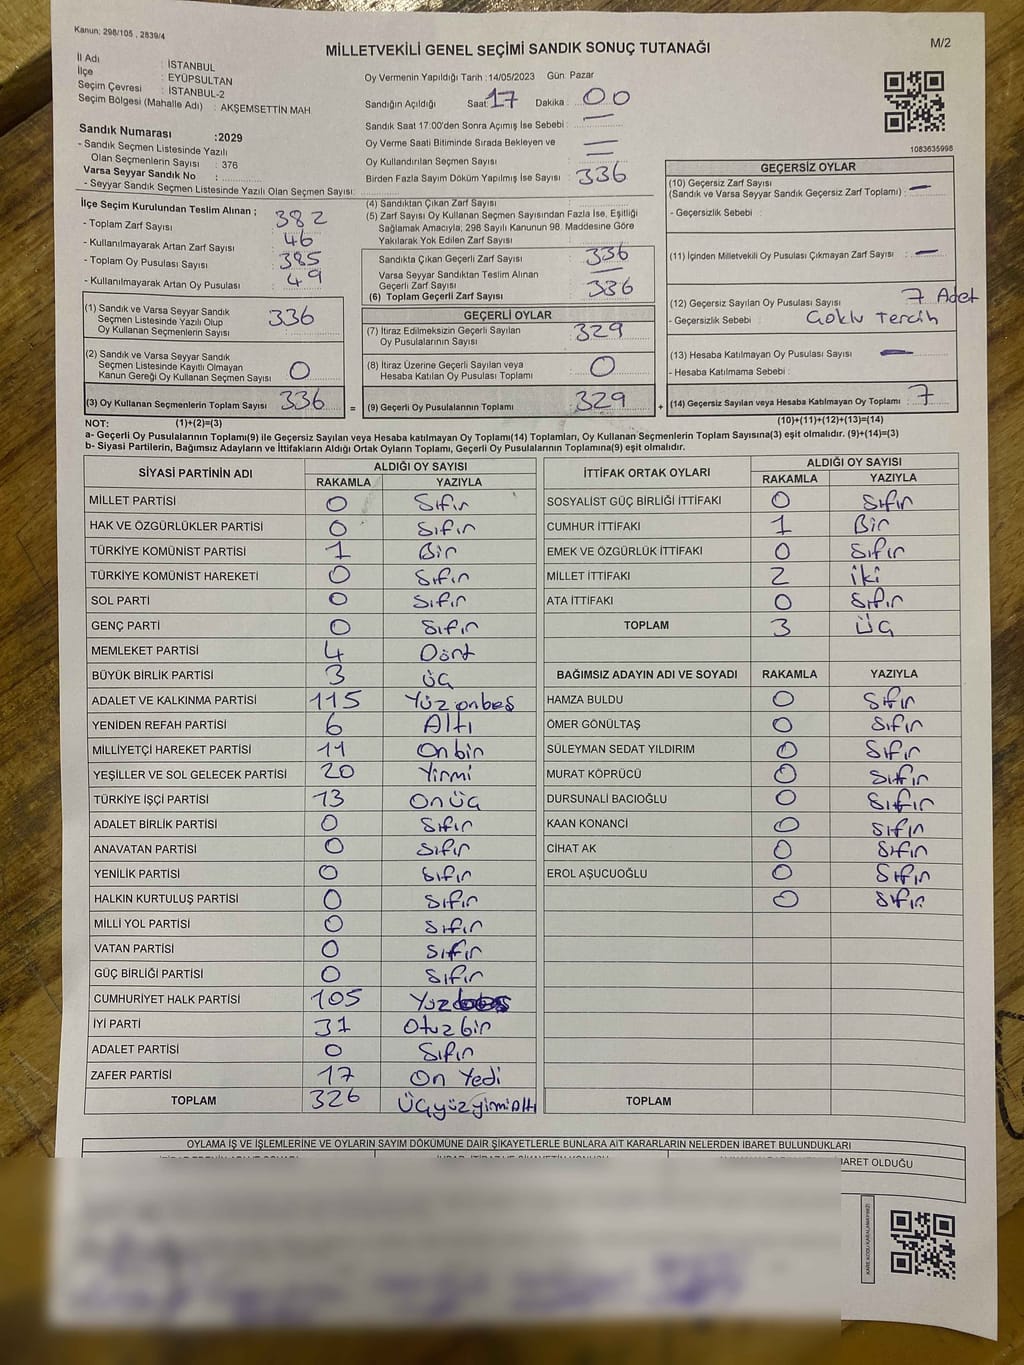 Kanun; 298/105 , 2839/4
MİLLETVEKİLİ GENEL SEÇİMİ SANDIK SONUÇ TUTANAĞI
M/2
İl Adı : İSTANBUL
İlçe : EYÜPSULTAN
Seçim Çevresi : İSTANBUL-2
Seçim Bölgesi (Mahalle Adı) : AKŞEMSETTİN MAH.
Sandık Numarası :2029
- Sandık Seçmen Listesinde Yazılı
Olan Seçmenlerin Sayısı : 376
Varsa Seyyar Sandık No :
- Seyyar Sandık Seçmen Listesinde Yazılı Olan Seçmen Sayısı:
Oy Vermenin Yapıldığı Tarih :14/05/2023 Gün: Pazar
Sandığın Açıldığı Saat: 17 Dakika : 00
Sandık Saat 17:00'den Sonra Açımış İse Sebebi : —
Oy Verme Saati Bitiminde Sırada Bekleyen ve
Oy Kullandırılan Seçmen Sayısı :
Birden Fazla Sayım Döküm Yapılmış İse Sayısı : 336
1083635998
İlçe Seçim Kurulundan Teslim Alınan ;
- Toplam Zarf Sayısı : 382
- Kullanılmayarak Artan Zarf Sayısı : 46
- Toplam Oy Pusulası Sayısı : 385
- Kullanılmayarak Artan Oy Pusulası : 49
(1) Sandık ve Varsa Seyyar Sandık
Seçmen Listesinde Yazılı Olup
Oy Kullanan Seçmenlerin Sayısı : 336
(2) Sandık ve Varsa Seyyar Sandık
Seçmen Listesinde Kayıtlı Olmayan
Kanun Gereği Oy Kullanan Seçmen Sayısı : 0
(3) Oy Kullanan Seçmenlerin Toplam Sayısı : 336
(4) Sandıktan Çıkan Zarf Sayısı :
(5) Zarf Sayısı Oy Kullanan Seçmen Sayısından Fazla İse, Eşitliği
Sağlamak Amacıyla; 298 Sayılı Kanunun 98. Maddesine Göre
Yakılarak Yok Edilen Zarf Sayısı :
Sandıkta Çıkan Geçerli Zarf Sayısı : 336
Varsa Seyyar Sandıktan Teslim Alınan
Geçerli Zarf Sayısı : —
(6) Toplam Geçerli Zarf Sayısı : 336
GEÇERLİ OYLAR
(7) İtiraz Edilmeksizin Geçerli Sayılan
Oy Pusulalarının Sayısı : 329
(8) İtiraz Üzerine Geçerli Sayılan veya
Hesaba Katılan Oy Pusulası Toplamı : 0
= (9) Geçerli Oy Pusulalarının Toplamı : 329
GEÇERSİZ OYLAR
(10) Geçersiz Zarf Sayısı
(Sandık ve Varsa Seyyar Sandık Geçersiz Zarf Toplamı) : —
- Geçersizlik Sebebi :
(11) İçinden Milletvekili Oy Pusulası Çıkmayan Zarf Sayısı : —
(12) Geçersiz Sayılan Oy Pusulası Sayısı : 7 Adet
- Geçersizlik Sebebi : Çoklu Tercih
(13) Hesaba Katılmayan Oy Pusulası Sayısı : —
- Hesaba Katılmama Sebebi :
+ (14) Geçersiz Sayılan veya Hesaba Katılmayan Oy Toplamı : 7
NOT: (1)+(2)=(3) (10)+(11)+(12)+(13)=(14)
a- Geçerli Oy Pusulalarının Toplamı(9) ile Geçersiz Sayılan veya Hesaba katılmayan Oy Toplamı(14) Toplamları, Oy Kullanan Seçmenlerin Toplam Sayısına(3) eşit olmalıdır. (9)+(14)=(3)
b- Siyasi Partilerin, Bağımsız Adayların ve İttifakların Aldığı Ortak Oyların Toplamı, Geçerli Oy Pusulalarının Toplamına(9) eşit olmalıdır.
SİYASİ PARTİNİN ADI ALDIĞI OY SAYISI
RAKAMLA YAZIYLA
MİLLET PARTİSİ 0 Sıfır
HAK VE ÖZGÜRLÜKLER PARTİSİ 0 Sıfır
TÜRKİYE KOMÜNİST PARTİSİ 1 Bir
TÜRKİYE KOMÜNİST HAREKETİ 0 Sıfır
SOL PARTİ 0 Sıfır
GENÇ PARTİ 0 Sıfır
MEMLEKET PARTİSİ 4 Dört
BÜYÜK BİRLİK PARTİSİ 3 üç
ADALET VE KALKINMA PARTİSİ 115 Yüz onbeş
YENİDEN REFAH PARTİSİ 6 Altı
MİLLİYETÇİ HAREKET PARTİSİ 11 Onbir
YEŞİLLER VE SOL GELECEK PARTİSİ 20 Yirmi
TÜRKİYE İŞÇİ PARTİSİ 13 Onüç
ADALET BİRLİK PARTİSİ 0 Sıfır
ANAVATAN PARTİSİ 0 Sıfır
YENİLİK PARTİSİ 0 Sıfır
HALKIN KURTULUŞ PARTİSİ 0 Sıfır
MİLLİ YOL PARTİSİ 0 Sıfır
VATAN PARTİSİ 0 Sıfır
GÜÇ BİRLİĞİ PARTİSİ 0 Sıfır
CUMHURİYET HALK PARTİSİ 105 Yüz
İYİ PARTİ 31 Otuz bir
ADALET PARTİSİ 0 Sıfır
ZAFER PARTİSİ 17 On Yedi
TOPLAM 326 Üçyüz yirmi Altı
İTTİFAK ORTAK OYLARI ALDIĞI OY SAYISI
RAKAMLA YAZIYLA
SOSYALİST GÜÇ BİRLİĞİ İTTİFAKI 0 Sıfır
CUMHUR İTTİFAKI 1 Bir
EMEK VE ÖZGÜRLÜK İTTİFAKI 0 Sıfır
MİLLET İTTİFAKI 2 iki
ATA İTTİFAKI 0 Sıfır
TOPLAM 3 Üç
BAĞIMSIZ ADAYIN ADI VE SOYADI RAKAMLA YAZIYLA
HAMZA BULDU 0 Sıfır
ÖMER GÖNÜLTAŞ 0 Sıfır
SÜLEYMAN SEDAT YILDIRIM 0 Sıfır
MURAT KÖPRÜCÜ 0 Sıfır
DURSUNALİ BACIOĞLU 0 Sıfır
KAAN KONANCİ 0 Sıfır
CİHAT AK 0 Sıfır
EROL AŞUCUOĞLU 0 Sıfır
0 Sıfır
TOPLAM
OYLAMA İŞ VE İŞLEMLERİNE VE OYLARIN SAYIM DÖKÜMÜNE DAİR ŞİKAYETLERLE BUNLARA AİT KARARLARIN NELERDEN İBARET BULUNDUKLARI
İBARET OLDUĞU